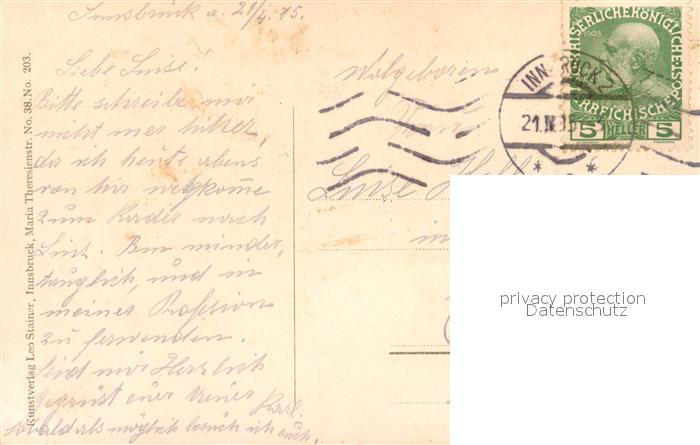 Innsbruck a. 21/4. 15.
Liebe Luise!
Bitte schreibe mir
nicht mer hiher,
da ich heute abens
von hir wegkome
zum Kader nach
Linz. Bin minder-
tauglich, und in
meiner Profession
zu ferwenden.
Seid mir Herzlich
gegrüst euer
Karl.
Sobald als möglich besuch ich euch.
Kunstverlag Leo Stainer, Innsbruck, Maria Theresienstr. No. 38. No. 203.
Wolgeboren
Luise
in
KAISERLICHE KÖNIGLICHE
ÖSTERREICHISCHE
1908
5 HELLER 5
INNSBRUCK 2
21.IV.15
privacy protection
Datenschutz